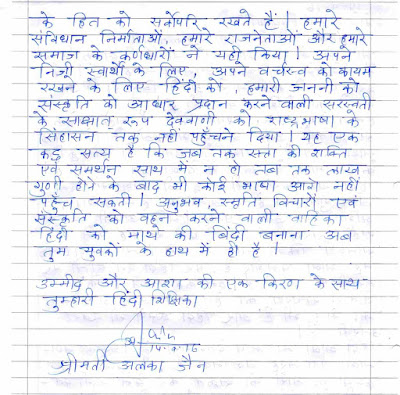 के हित को सर्वोपरि रखते हैं। हमारे
संविधान निर्माताओं, हमारे राजनेताओं और हमारे
समाज के कर्णधारों ने यही किया। अपने
निजी स्वार्थों के लिए, अपने वर्चस्व को कायम
रखने के लिए हिंदी को, हमारी जननी को
संस्कृति को आधार प्रदान करने वाली सरस्वती
के साक्षात् रूप देववाणी को राष्ट्रभाषा के
सिंहासन तक नहीं पहुँचने दिया। यह एक
कटु सत्य है कि जब तक सत्ता की शक्ति
एवं समर्थन साथ में न हो तब तक लाख
गुणी होने के बाद भी कोई भाषा आगे नहीं
पहुँच सकती। अनुभव, स्मृति विचारों एवं
संस्कृति को वहन करने वाली वाहिका
हिंदी को माथे की बिंदी बनाना अब
तुम युवकों के हाथ में ही है।
उम्मीद और आशा की एक किरण के साथ
तुम्हारी हिंदी शिक्षिका
श्रीमती अलका जैन